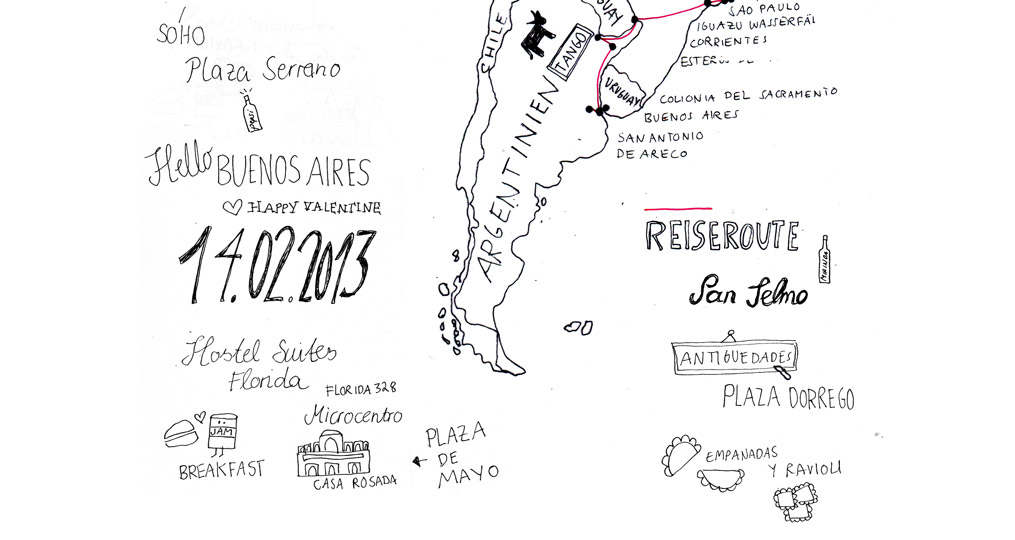 SOHO
Plaza Serrano
Hello BUENOS AIRES
HAPPY VALENTINE
14.02.2013
Hostel Suites
Florida
FLORIDA 328
Microcentro
JAM
BREAKFAST
CASA ROSADA
PLAZA
DE
MAYO
CHILE
ARGENTINIEN
TANGO
URUGUAY
SAO PAULO
IGUAZU WASSERFÄL
CORRIENTES
COLIONIA DEL SACRAMENTO
BUENOS AIRES
SAN ANTONIO
DE ARECO
REISEROUTE
San Telmo
ANTIGUEDADES
PLAZA DORREGO
EMPANADAS
Y RAVIOLI